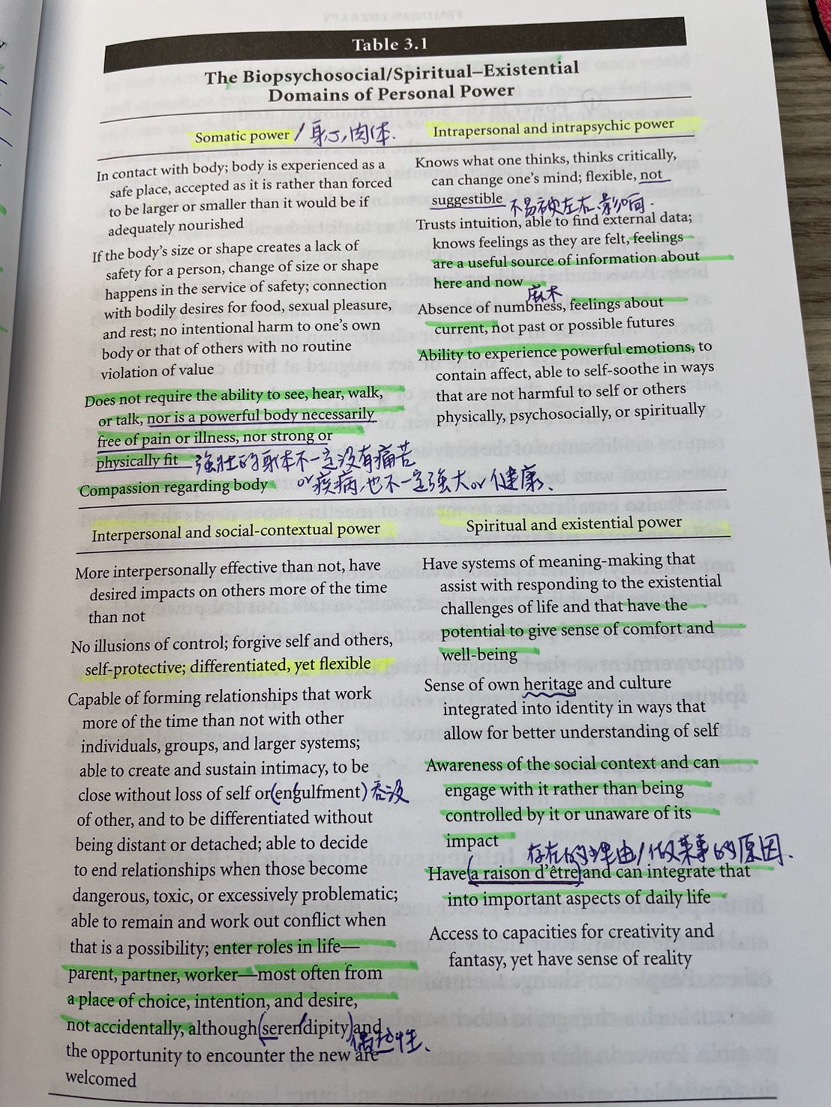 Table 3.1
The Biopsychosocial/Spiritual–Existential
Domains of Personal Power
Somatic power / 身心,肉体.
In contact with body; body is experienced as a
safe place, accepted as it is rather than forced
to be larger or smaller than it would be if
adequately nourished
If the body's size or shape creates a lack of
safety for a person, change of size or shape
happens in the service of safety; connection
with bodily desires for food, sexual pleasure,
and rest; no intentional harm to one's own
body or that of others with no routine
violation of value
Does not require the ability to see, hear, walk,
or talk, nor is a powerful body necessarily
free of pain or illness, nor strong or
physically fit 强壮的身体不一定没有痛苦
Compassion regarding body or疾病,也不一定强大or健康、
Intrapersonal and intrapsychic power
Knows what one thinks, thinks critically,
can change one's mind; flexible, not
suggestible 不易被左右.影响.
Trusts intuition, able to find external data;
knows feelings as they are felt, feelings
are a useful source of information about
here and now
麻木
Absence of numbness, feelings about
current, not past or possible futures
Ability to experience powerful emotions, to
contain affect, able to self-soothe in ways
that are not harmful to self or others
physically, psychosocially, or spiritually
Interpersonal and social-contextual power
More interpersonally effective than not, have
desired impacts on others more of the time
than not
No illusions of control; forgive self and others,
self-protective; differentiated, yet flexible
Capable of forming relationships that work
more of the time than not with other
individuals, groups, and larger systems;
able to create and sustain intimacy, to be
close without loss of self or (engulfment) 吞没
of other, and to be differentiated without
being distant or detached; able to decide
to end relationships when those become
dangerous, toxic, or excessively problematic;
able to remain and work out conflict when
that is a possibility; enter roles in life—
parent, partner, worker—most often from
a place of choice, intention, and desire,
not accidentally, although (serendipity) and
the opportunity to encounter the new are 偶然性、
welcomed
Spiritual and existential power
Have systems of meaning-making that
assist with responding to the existential
challenges of life and that have the
potential to give sense of comfort and
well-being
Sense of own heritage and culture
integrated into identity in ways that
allow for better understanding of self
Awareness of the social context and can
engage with it rather than being
controlled by it or unaware of its
impact
存在的理由/做某事的原因.
Have (a raison d'être) and can integrate that
into important aspects of daily life
Access to capacities for creativity and
fantasy, yet have sense of reality